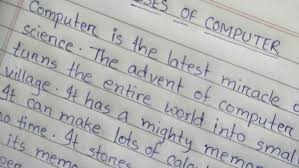 OF COMPUTER
Computer is the latest miracle
science. The advent of computer
turns the entire world into small
village. It has a mighty
It can make lots of
time. It stores
its